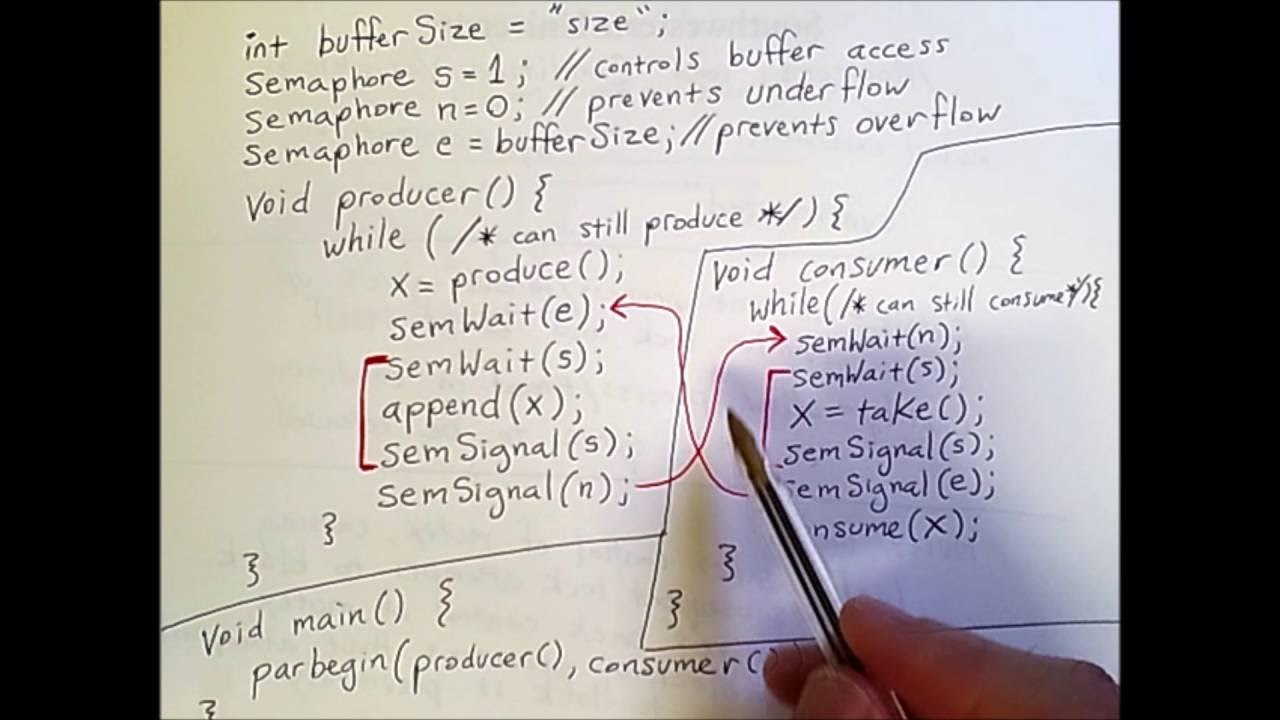 int bufferSize = "size";
Semaphore s = 1; // controls buffer access
Semaphore n = 0; // prevents underflow
Semaphore e = bufferSize; // prevents overflow
Void producer() {
while ( /* can still produce */) {
x = produce();
semWait(e);
semWait(s);
append(x);
semSignal(s);
semSignal(n);
}
}
Void consumer() {
while(/* can still consume*/){
semWait(n);
semWait(s);
X = take();
semSignal(s);
semSignal(e);
nsume(X);
}
}
Void main() {
parbegin(producer(), consumer(
}